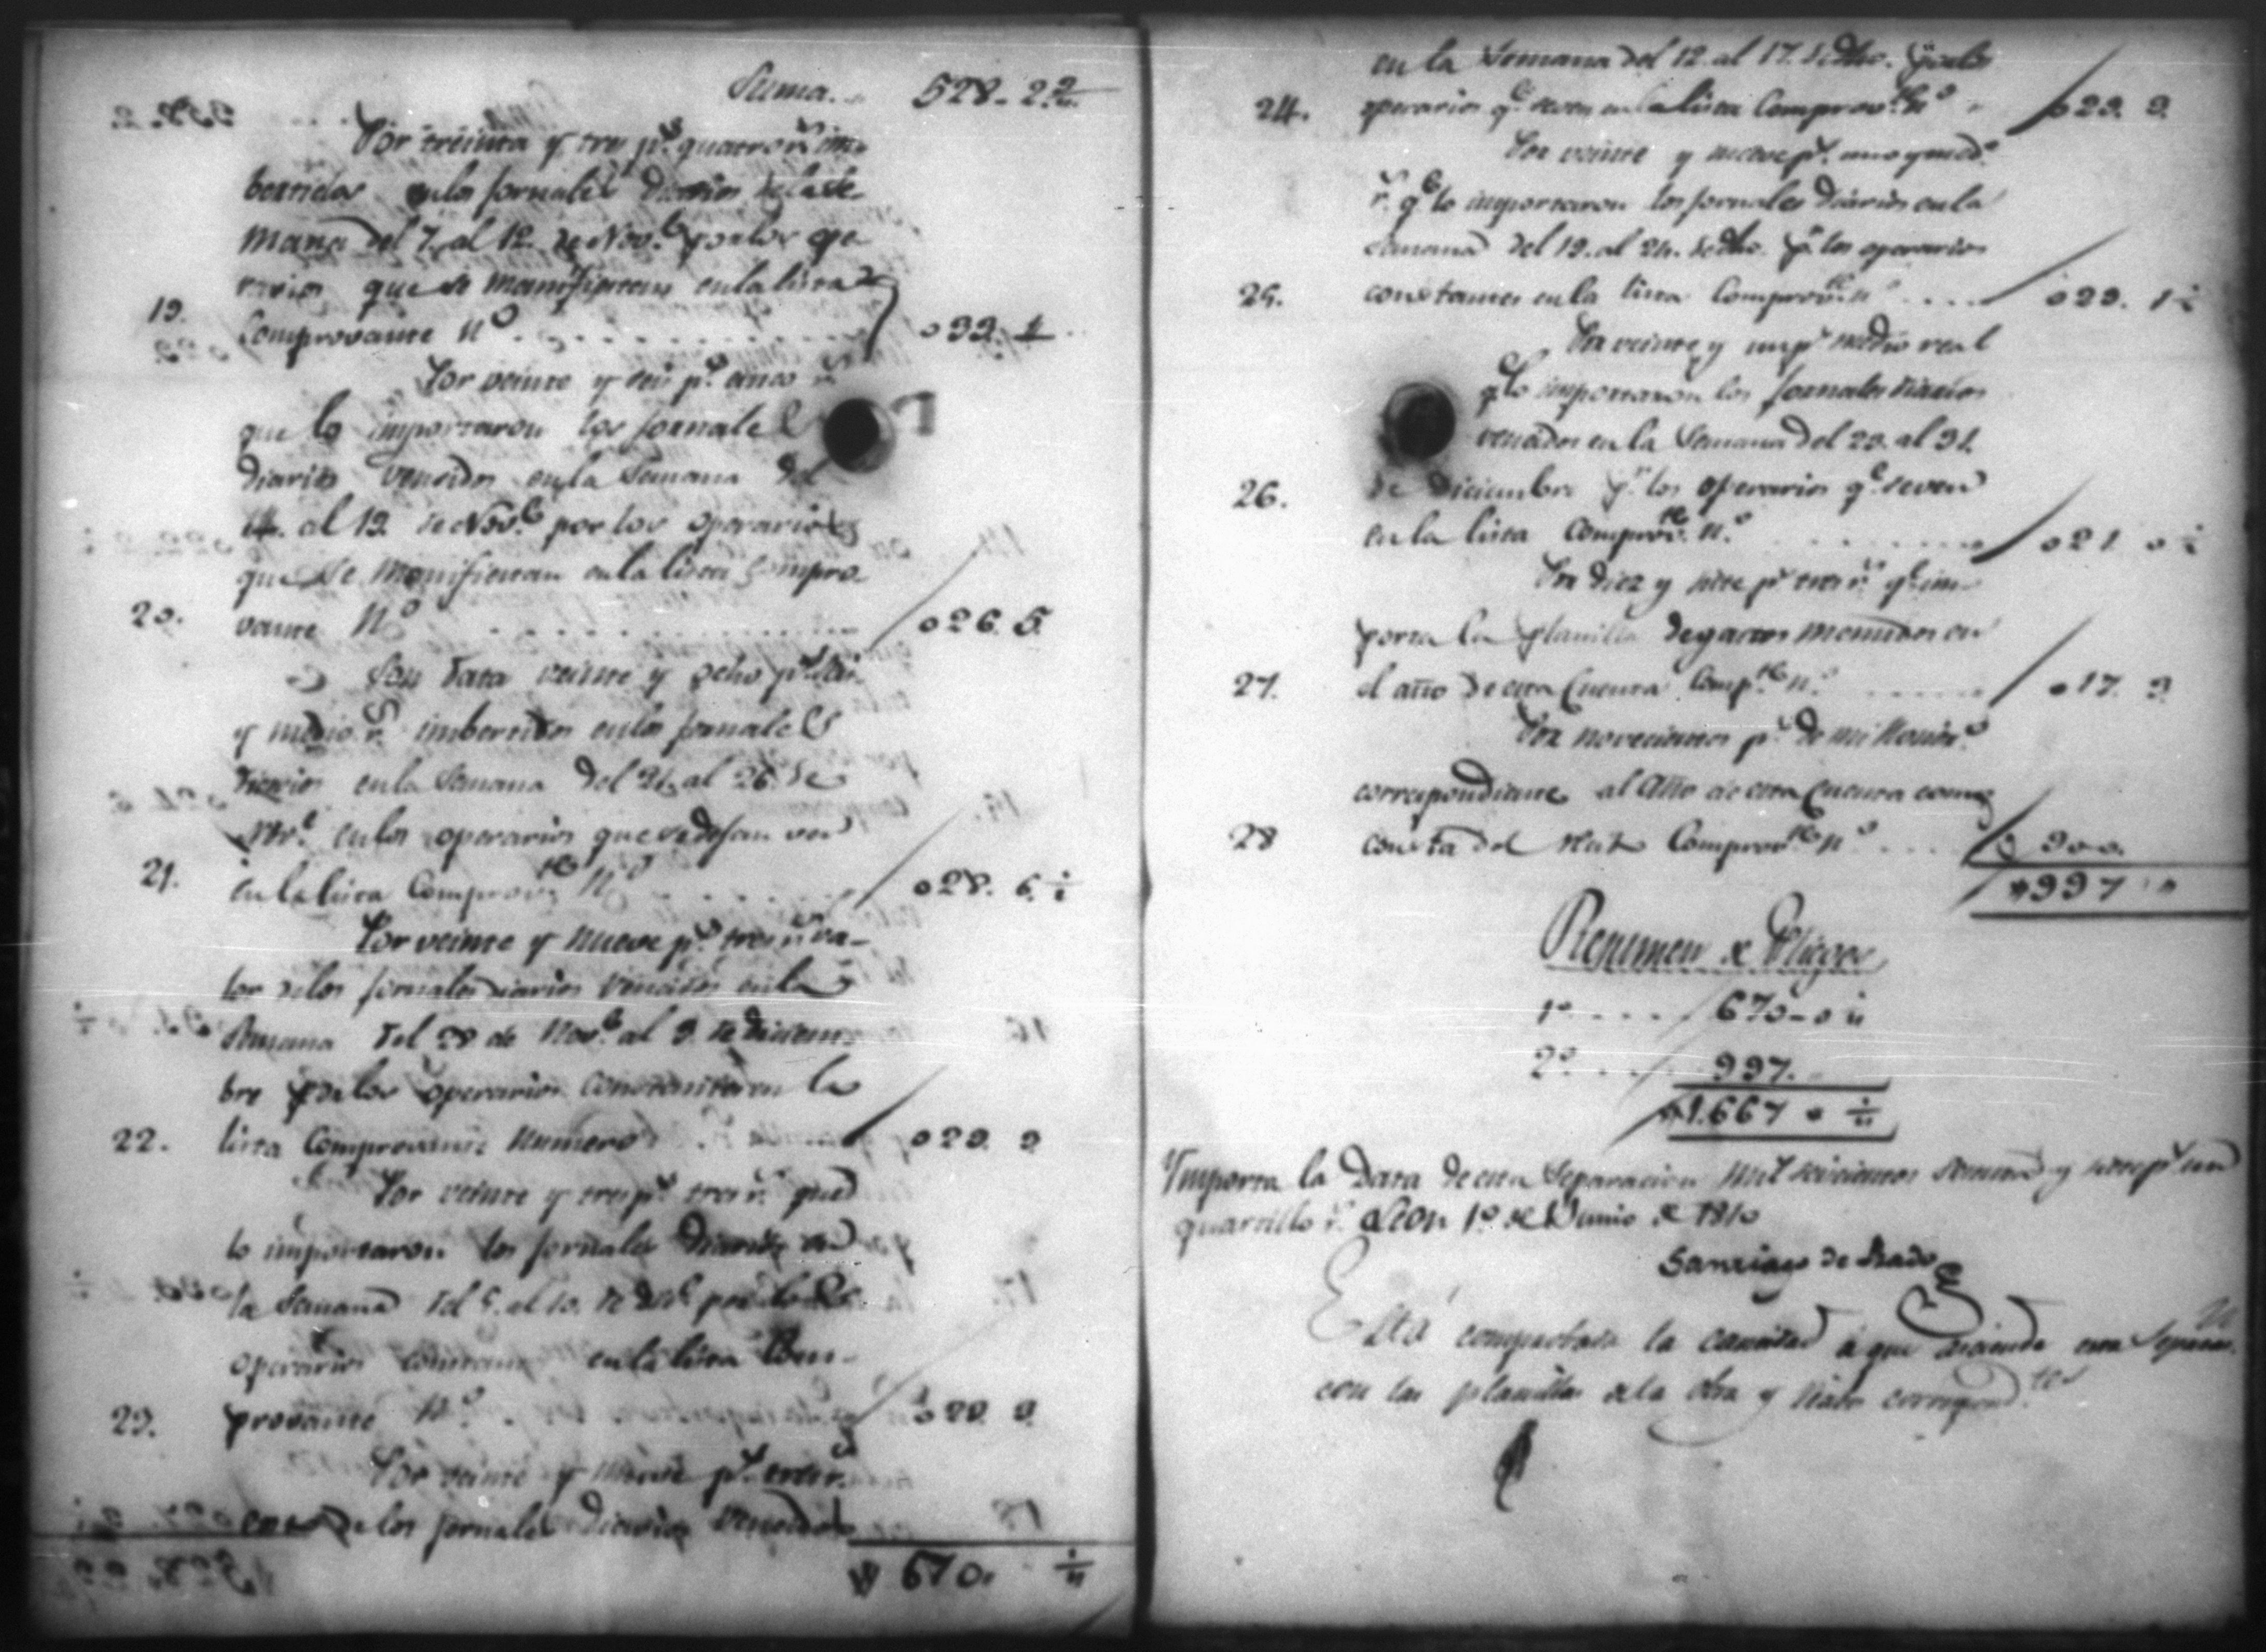 Suma... 528. 2 2/4
Por treinta y tres p.s quatro r.s im-
bertidos en los jornales diarios de la Se-
mana del 7. al 12. de Nov.e por los ope-
rarios que se manifiestan en la lista
19. Comprovante N.o . . . 033. 4
Por veinte y seis p.s cinco r.s
que lo importaron los jornales
diarios vencidos en la Semana del
14. al 19. de Nov.e por los operarios
que se manifiestan en la lista Compro-
20. vante N.o . . . 026. 5.
Son Data veinte y ocho p.s seis
y medio r.s imbertidos en los jornales
diarios en la Semana del 21. al 26. de
Nov.e en los operarios que se dejan ver
21. en la lista Comprov.te N.o . . . 028. 6 1/2
Por veinte y nueve p.s tres r.s va-
lor de los jornales diarios vencidos en la
Semana del 28 de Nov.e al 3. de Diciem-
bre por los operarios en la
22. lista Comprovante Numero . . . 029. 3
Por veinte y tres p.s tres r.s que
lo importaron los jornales diarios en
la Semana del 5. al 10. de por los
operarios en la lista Com-
23. provante N.o . . . 3.
Por veinte y nueve p.s tres r.s
de los jornales diarios vencidos
670. 1/4
en la Semana del 12. al 17. de dho. por los
24. operarios q.e se ven en la lista Comprov.te N.o . . . 029. 3.
Por veinte y nueve p.s uno y med.o
r.s q.e lo importaron los jornales diarios en la
Semana del 19. al 24. de dho. p.r los operarios
25. constantes en la lista Comprov.te n.o . . . 029. 1 1/2
Por veinte y un p.s medio real
q.e lo importaron los jornales diarios
vencidos en la Semana del 23. al 31.
26. de Diciembre p.r los operarios q.e se ven
en la lista Comprov.te N.o . . . 021 0 1/2
Por diez y siete p.s tres r.s q.e im-
porta la planilla de gastos menudos en
27. el año de esta Cuenta Comp.te n.o . . . 017. 3.
Por novecientos p.s de mi Honor.o
correspondiente al Año de esta Cuenta como
28 consta del Comprov.te n.o . . . 900.
997
Resumen de Pliegos
1o . . . . 670 - 0 1/4
2o . . . . 997.
1.667 0 1/4
Ymporta la Data de esta Separacion mil seiscientos sesenta y siete p.s un
quartillo r.l Leon 1o de Junio de 1810
Santiago de Prado
Está comprobada la cantidad á que asciende esta Separac.n
con las planillas de la obra y correspond.tes